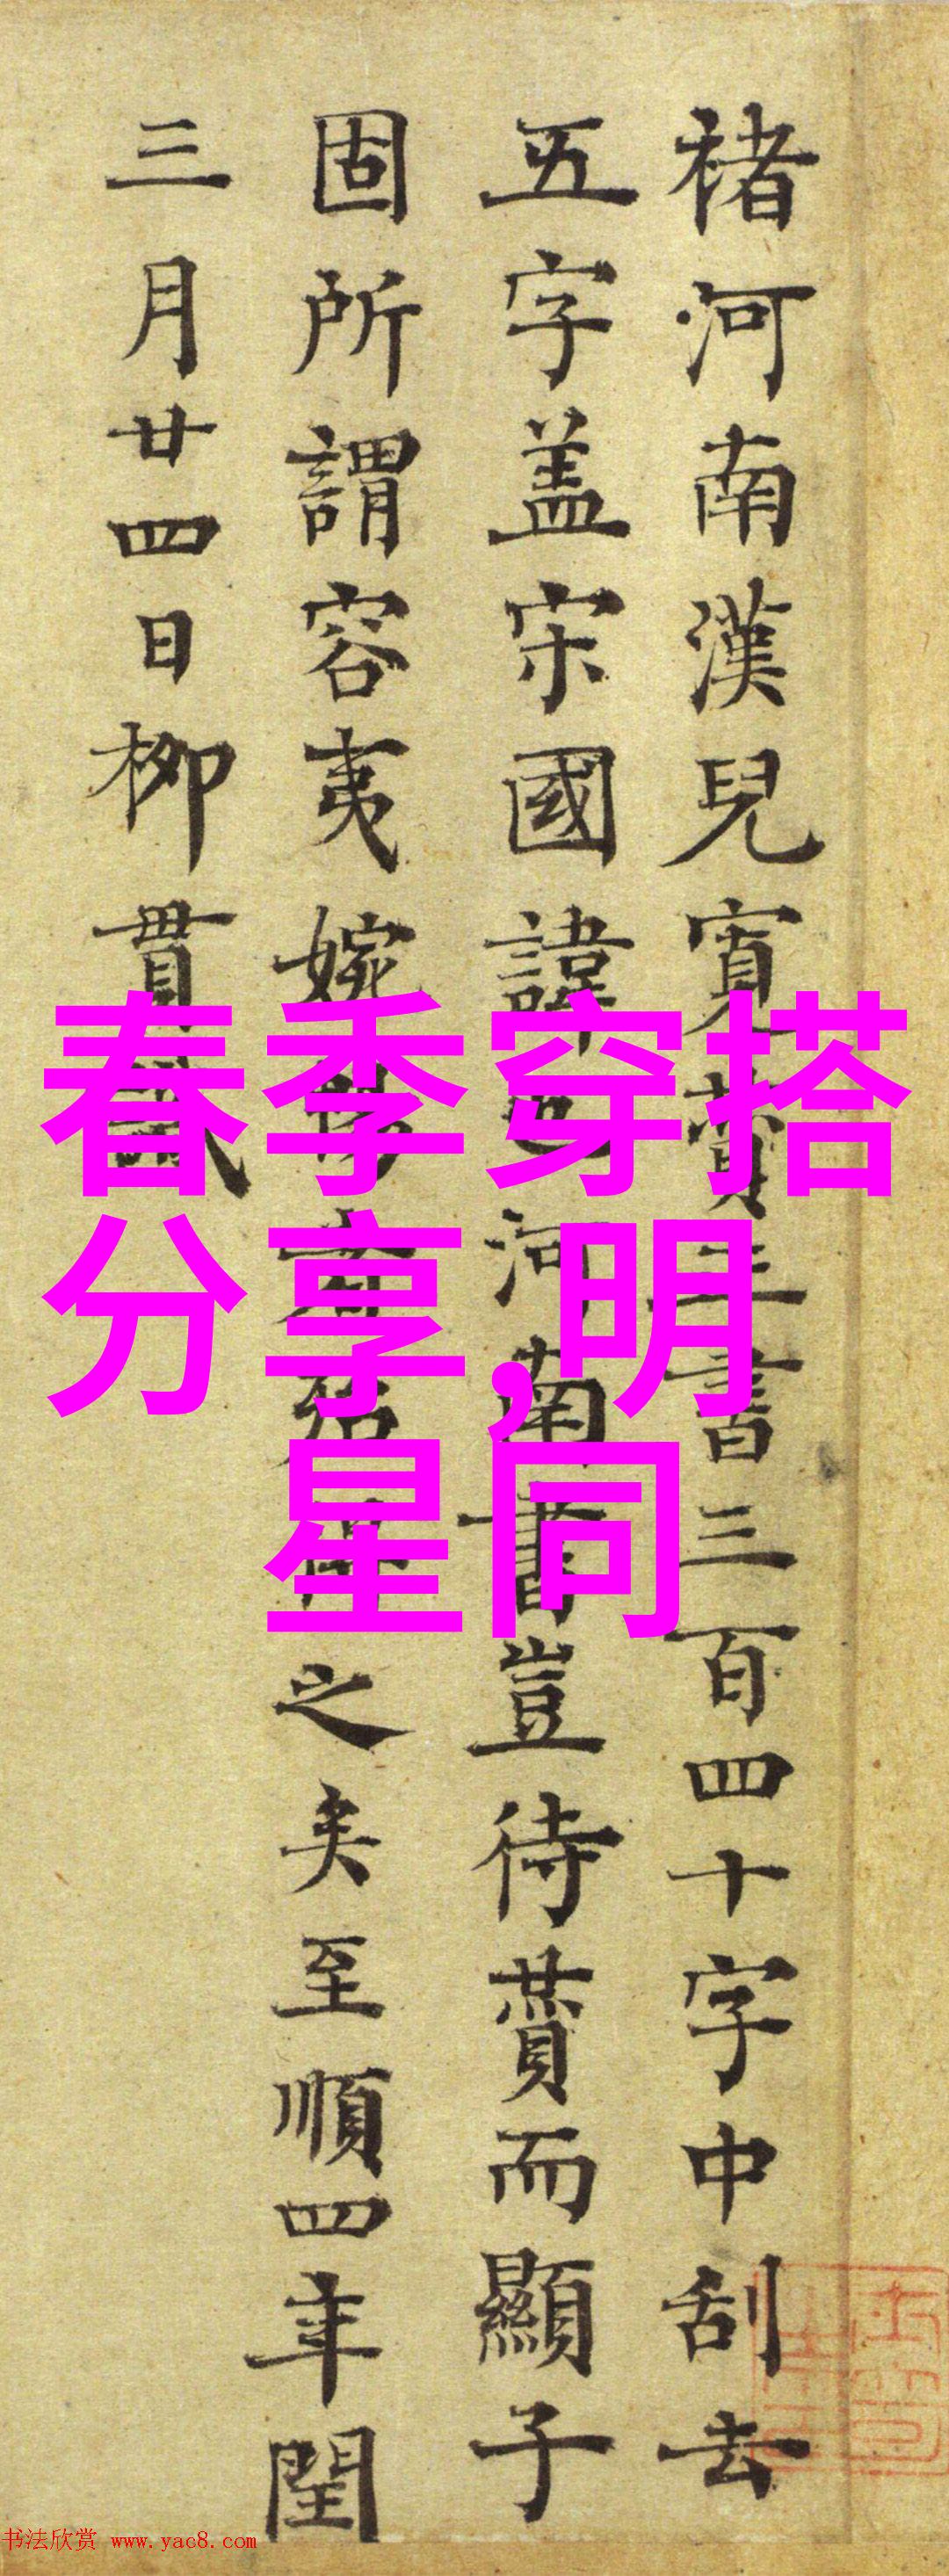 褚河南漢兒寬贊一書三百四十字中刮去
五字盖宋國諱也河南書豈待賛而顯子
固所謂容夷婉暢者得之矣至順四年閏
三月廿四日柳貫識
春季穿搭
分享,明
星同
书法欣赏 www.yac8.com